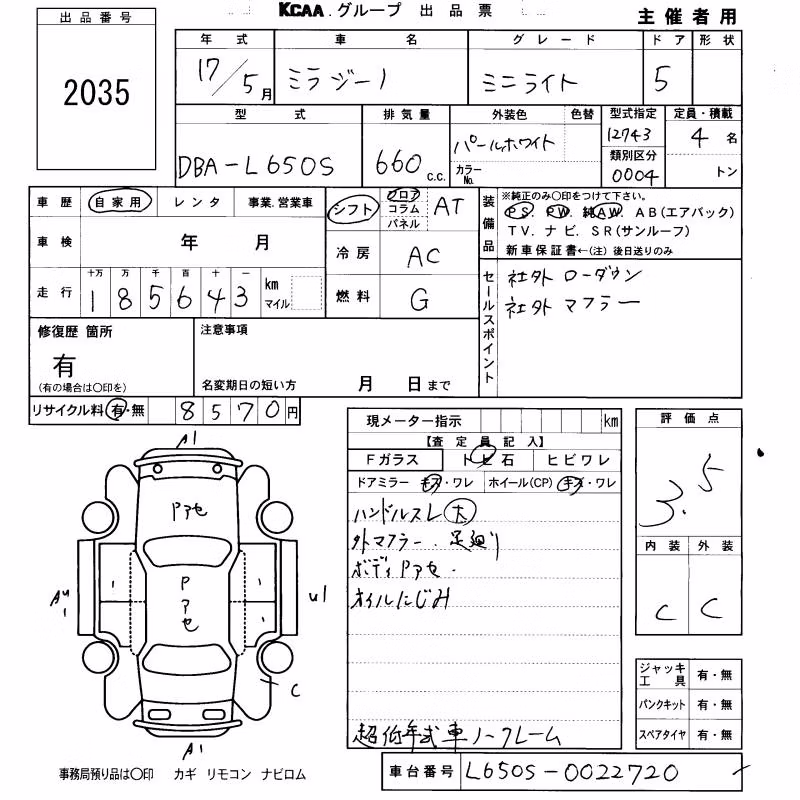 KCAA.グループ 出品票
主催者用
出品番号
2035
年式 車名 グレード ドア 形状
17/5月 ミラジーノ ミニライト 5
型式 排気量 外装色 色替 型式指定 定員・積載
DBA-L650S 660 C.C. パールホワイト 12743 4名
カラーNo. 類別区分 0004 トン
車歴 自家用 レンタ 事業.営業車
シフト フロア コラム パネル AT
装備品 ※純正のみ○印をつけて下さい。
PS. PW. 純AW. AB(エアバック)
TV. ナビ. SR(サンルーフ)
新車保証書←(注)後日送りのみ
車検 年 月
冷房 AC
走行 十万 万 千 百 十 一 km マイル
1 8 5 6 4 3
燃料 G
セールスポイント
社外 ローダウン
社外 マフラー
修復歴 箇所
有
(有の場合は○印を)
注意事項
名変期日の短い方 月 日まで
リサイクル料 有・無 8570円
現メーター指示 km
【査定員記入】
Fガラス トビ石 ヒビワレ
ドアミラー キズ・ワレ ホイール(CP) キズ・ワレ
ハンドルスレ 大
外マフラー. 足廻り
ボディPアセ.
オイルにじみ
超低年式車ノークレーム
評価点
3.5
内装 外装
C C
ジャッキ工具 有・無
パンクキット 有・無
スペアタイヤ 有・無
A1
Pアセ
Pアセ
U1
C
A1
事務局預り品は○印 カギ リモコン ナビロム
車台番号 L650S-0022720